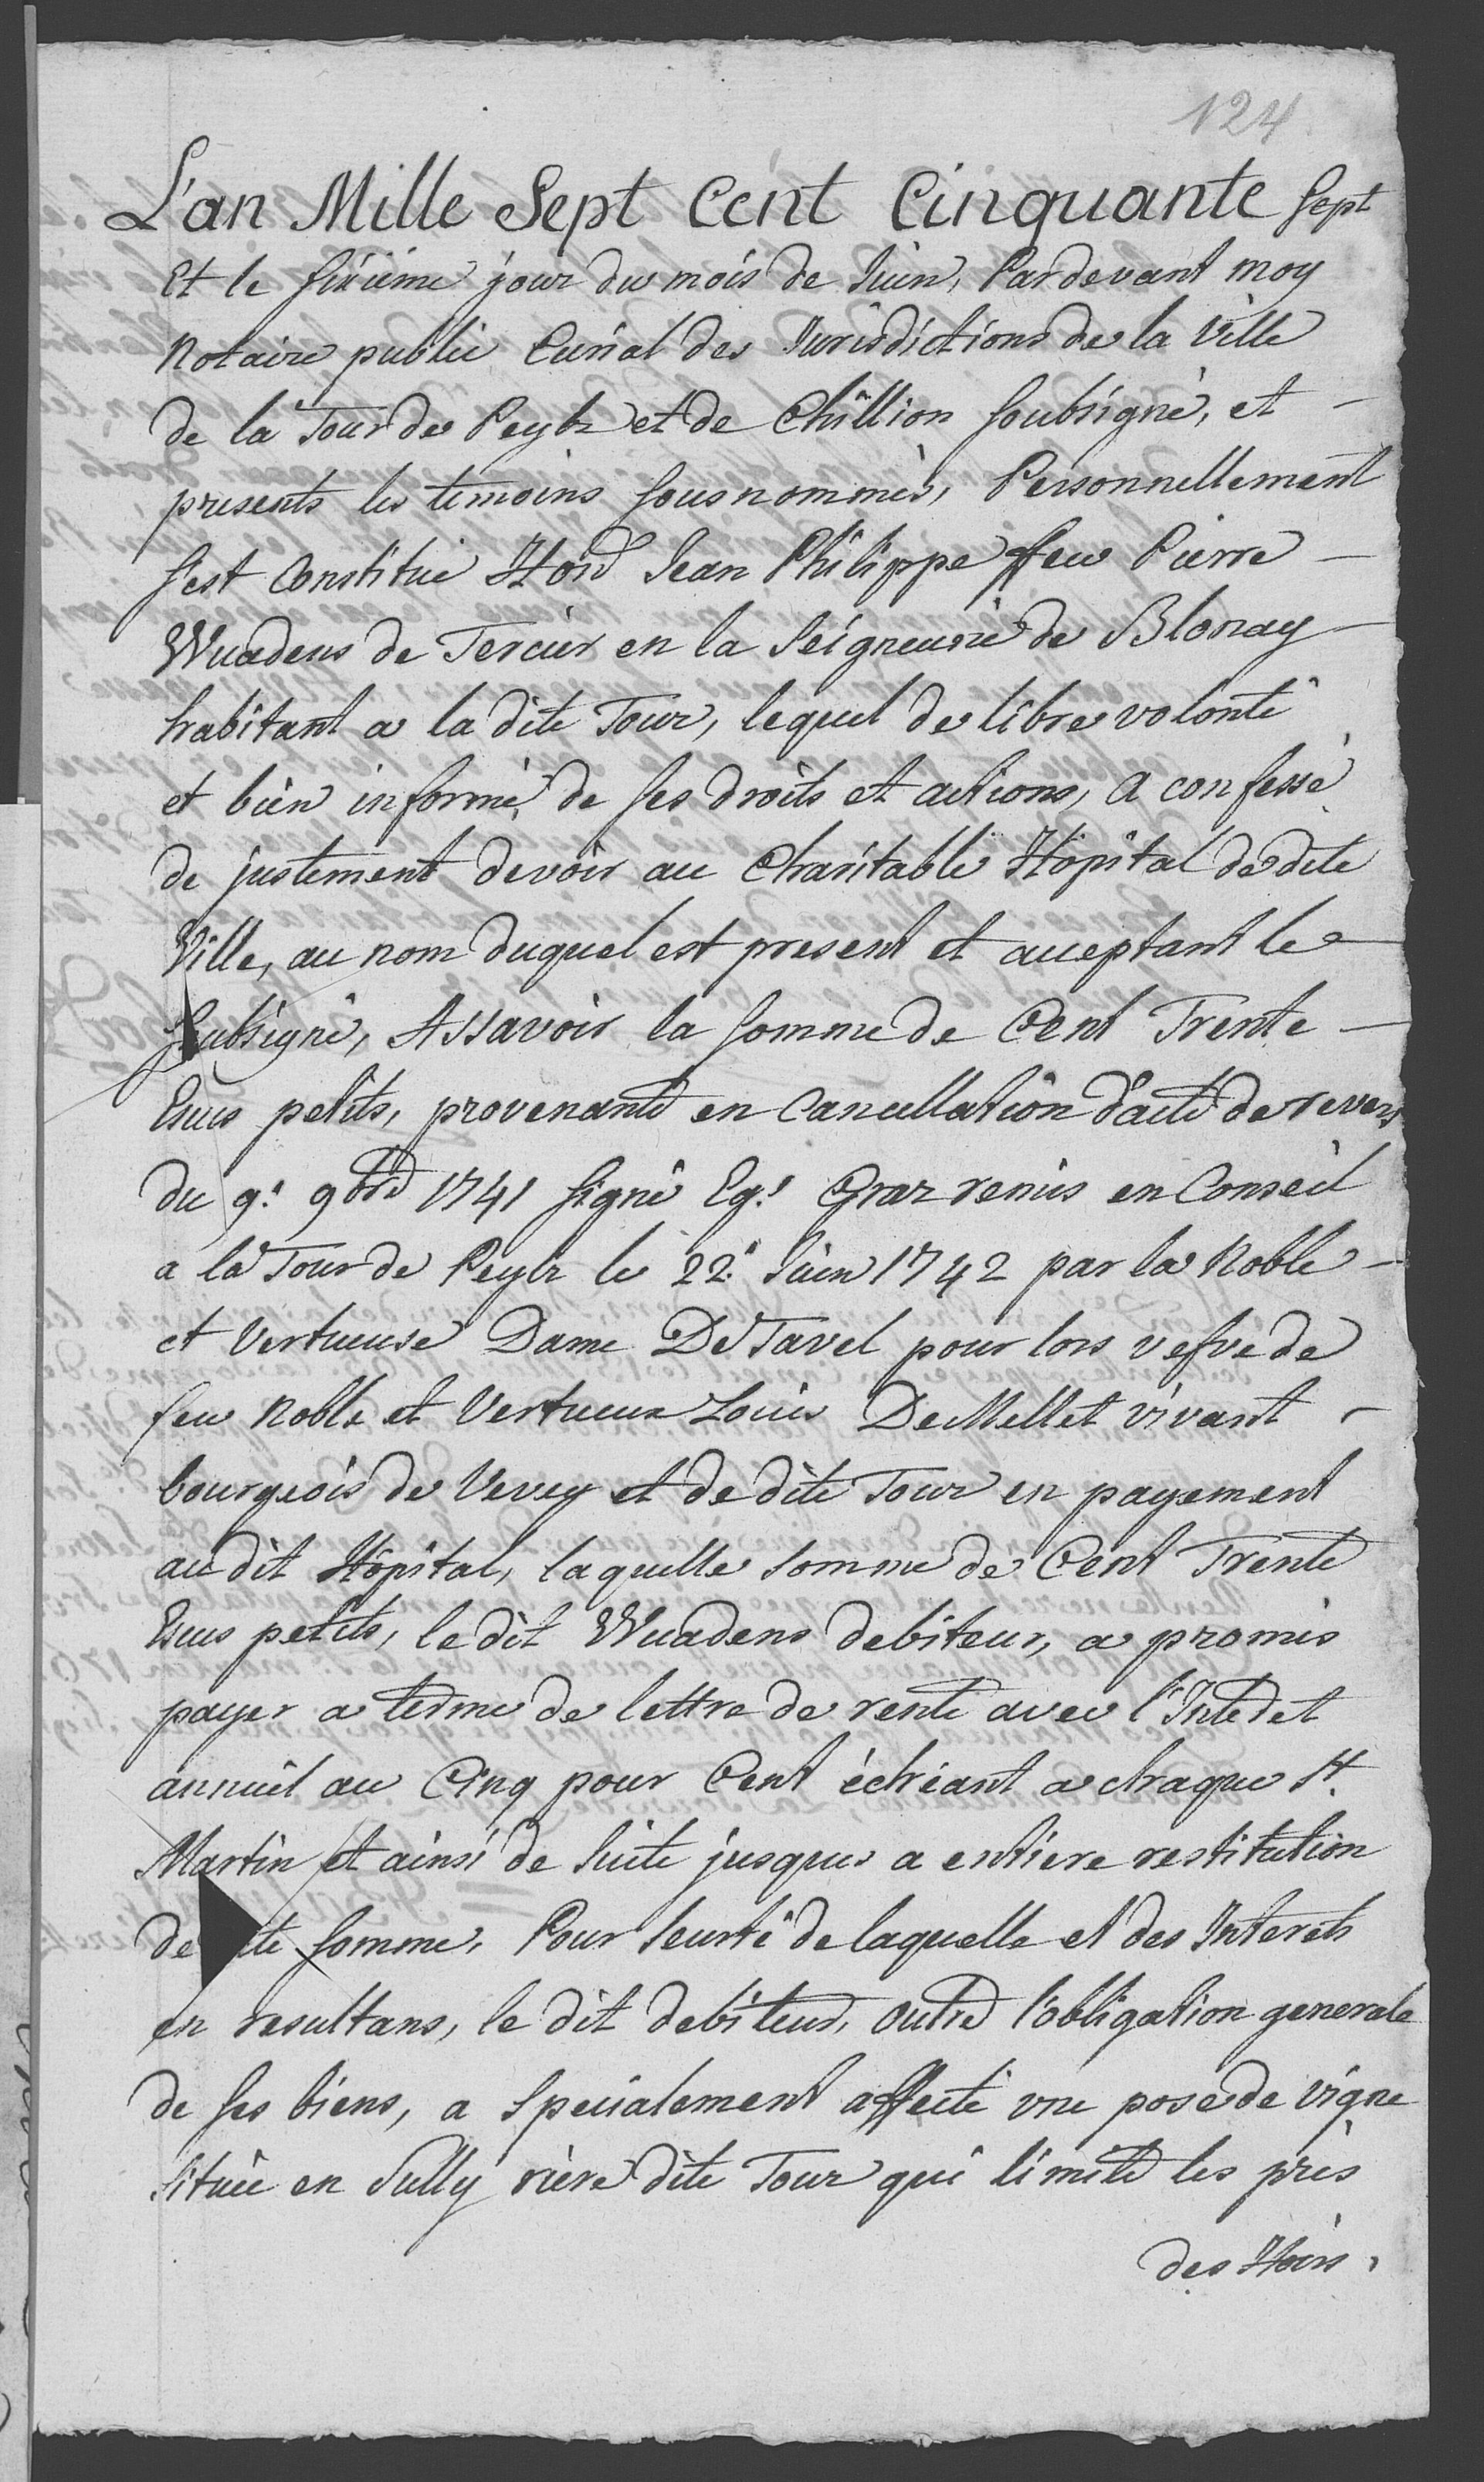 124
L'an Mille Sept Cent Cinquante Sept
Et le Sixiême jour du mois de Juin, Pardevant moy
Notaire public Curial des Jurisdictions de la Ville
de la Tour de Peylz et de Chillion Soubsigné, et -
presents les temoins Sousnommés, Personnellement
Sest Constitué Hon.d Jean Philippe ffeu Pierre -
Wuadens de Tercier en la Seigneurie de Blonay -
habitant a la dite Tour, lequel de libre volonté
et bien informé de Ses droits et actions, a confessé
de justement devoir au Charitable Hôpital de dite
Ville, au nom duquel est present et acceptant le -
Subsigné, Assavoir la Somme de Cent Trente -
Escus petits, provenants en Cancellation d'acte de revers
du 9.e 9bre 1741 Signé Eg.e Graz remis en Conseil
a la Tour de Peylz le 22.e Juin 1742 par la Noble -
et Vertueuse Dame De Tavel pour lors vefve de
feu Noble et Vertueux Louis De Mellet vivant -
bourgeois de Vevey et de dite Tour en payement
au dit Hôpital, laquelle Somme de Cent Trente
Escus petits, le dit Wuadens debiteur, a promis
payer a terme de lettre de rente avec l'Interet
annuel au Cinq pour Cent échéant a chaque St.
Martin et ainsi de Suite jusques a entiere restitution
de te Somme. Pour Seurté de laquelle et des Interets
en resultans, le dit debiteur, outre l'obligation generale
de Ses biens, a Specialement affecté vne pose de vigne
Située en Sully riere dite Tour qui limite les prés
des Hoirs,